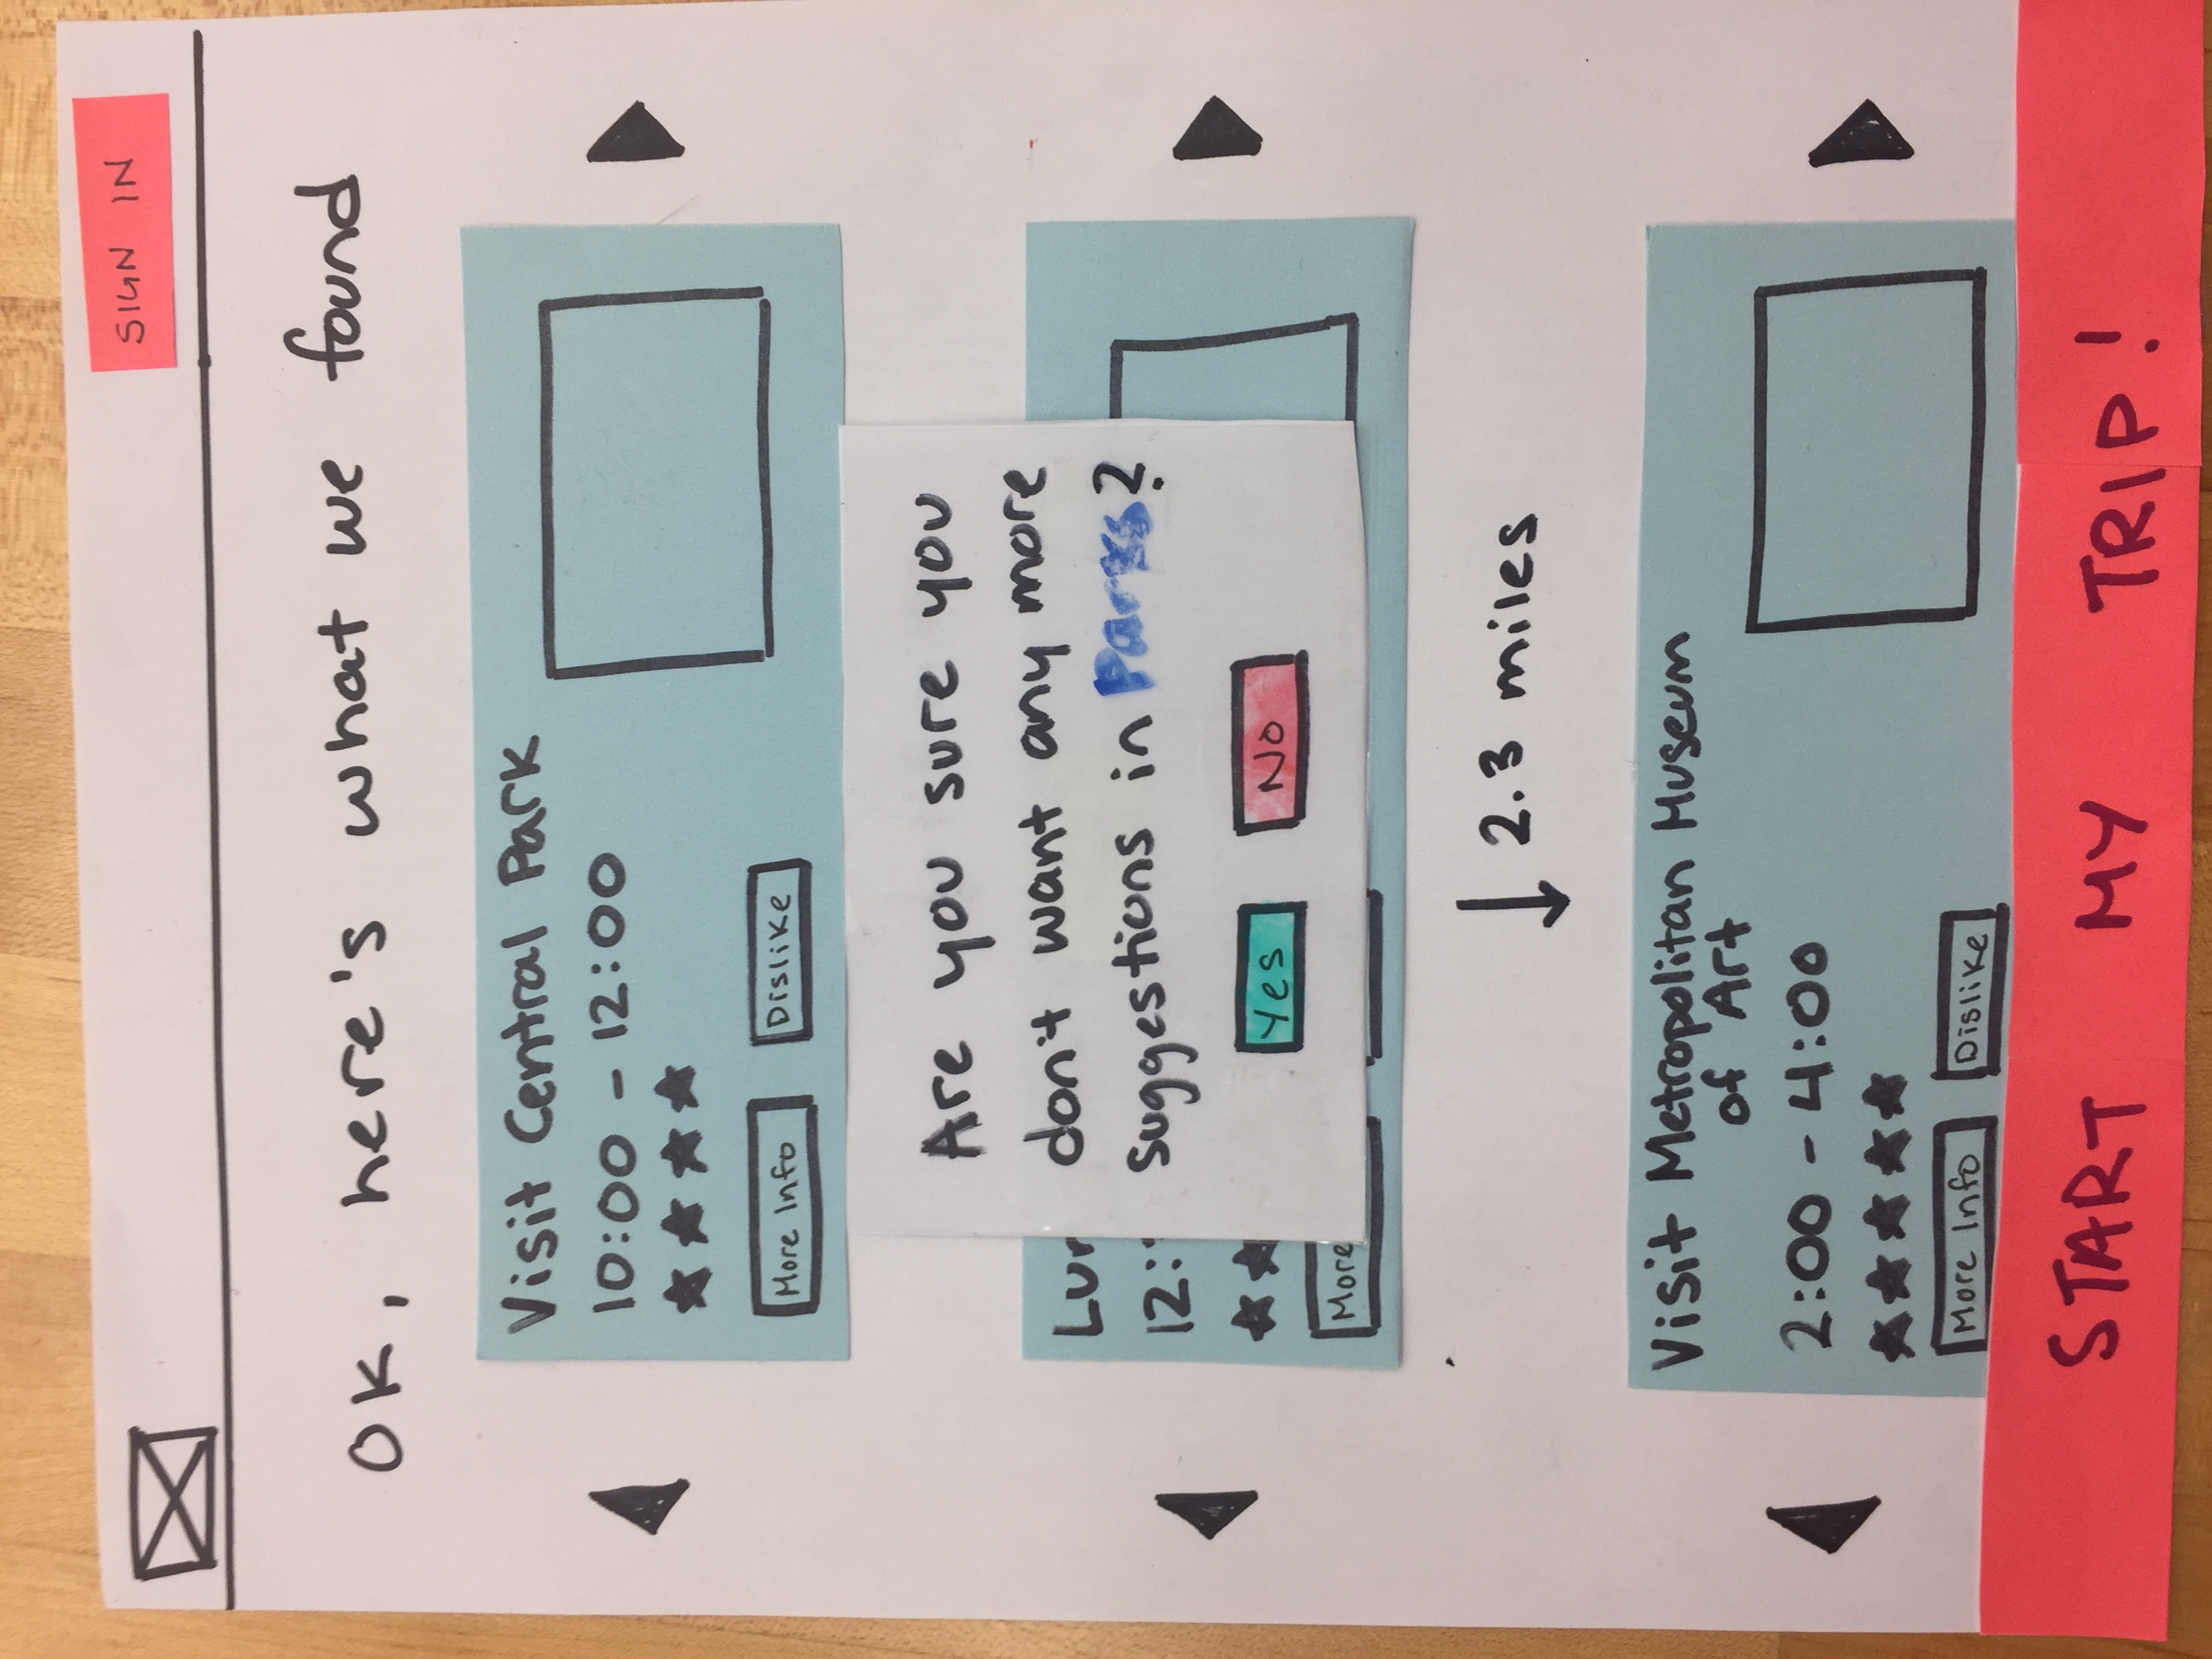 SIGN IN
OK, here's what we found
Visit Central Park
10:00 - 12:00
More Info
Dislike
Are you sure you
don't want any more
suggestions in Parks?
Yes
No
12:
More
2.3 miles
Visit Metropolitan Museum
of Art
2:00 - 4:00
More Info
Dislike
START MY TRIP!